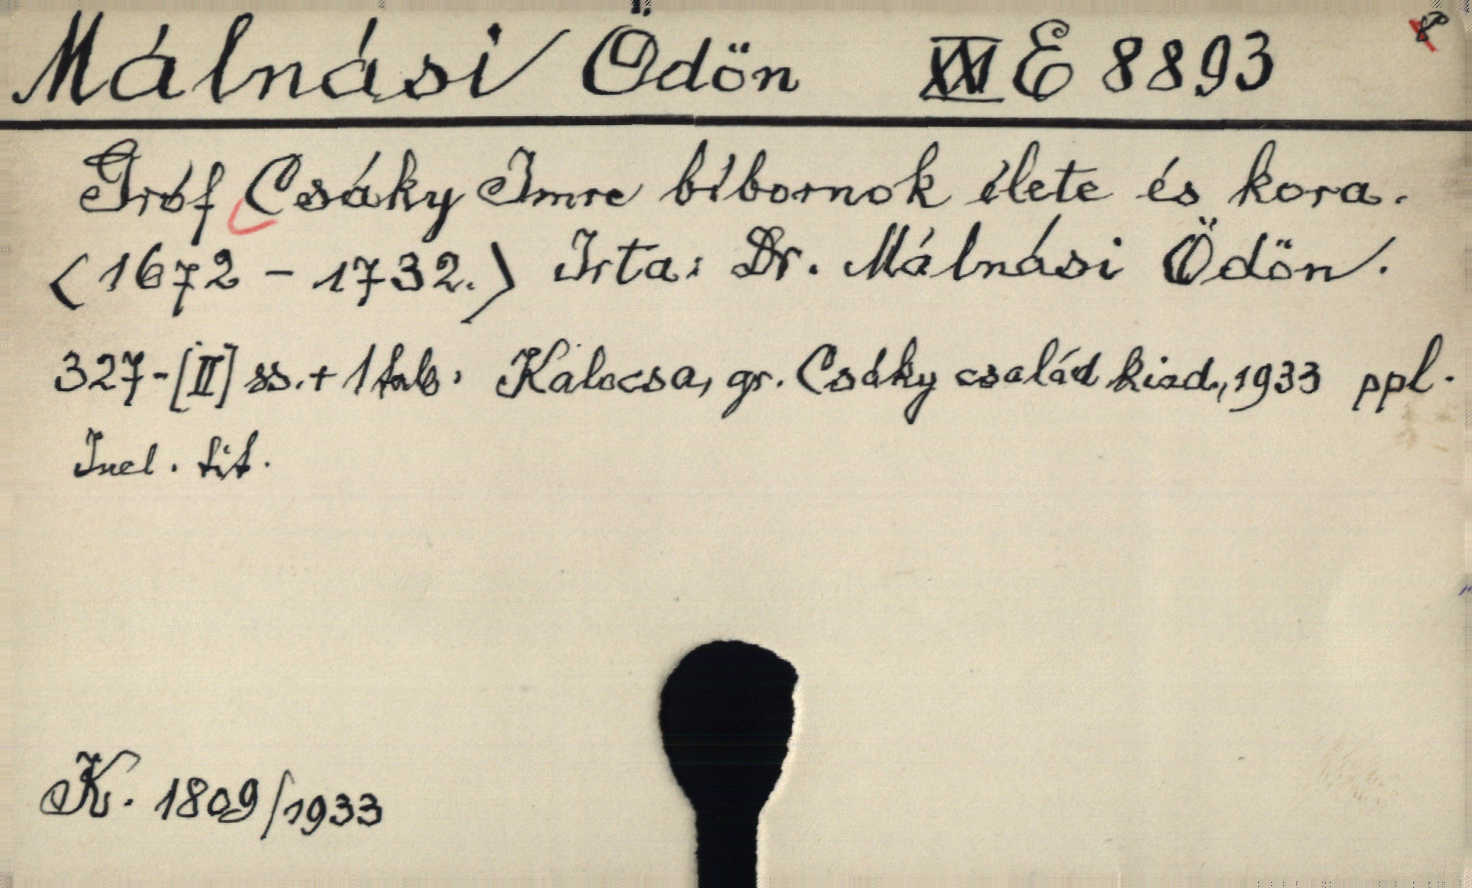 Málnási Ödön XXI E 8893 8°
Gróf Csáky Imre bíbornok élete és kora.
<1672 - 1732.> Irta: Dr. Málnási Ödön.
327-[II] ss. + 1 tab. Kalocsa, gr. Csáky család kiad., 1933 ppl.
Incl. tit.
K. 1809/1933